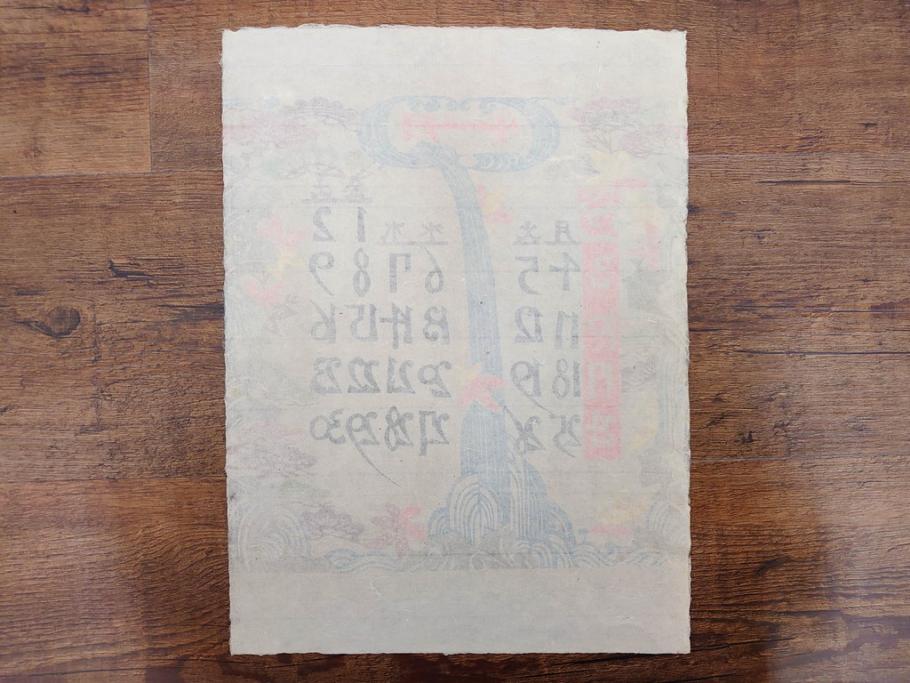 月 火 水 木 金 土
1 2
4 5 6 7 8 9
11 12 13 14 15 16
18 19 20 21 22 23
25 26 27 28 29 30